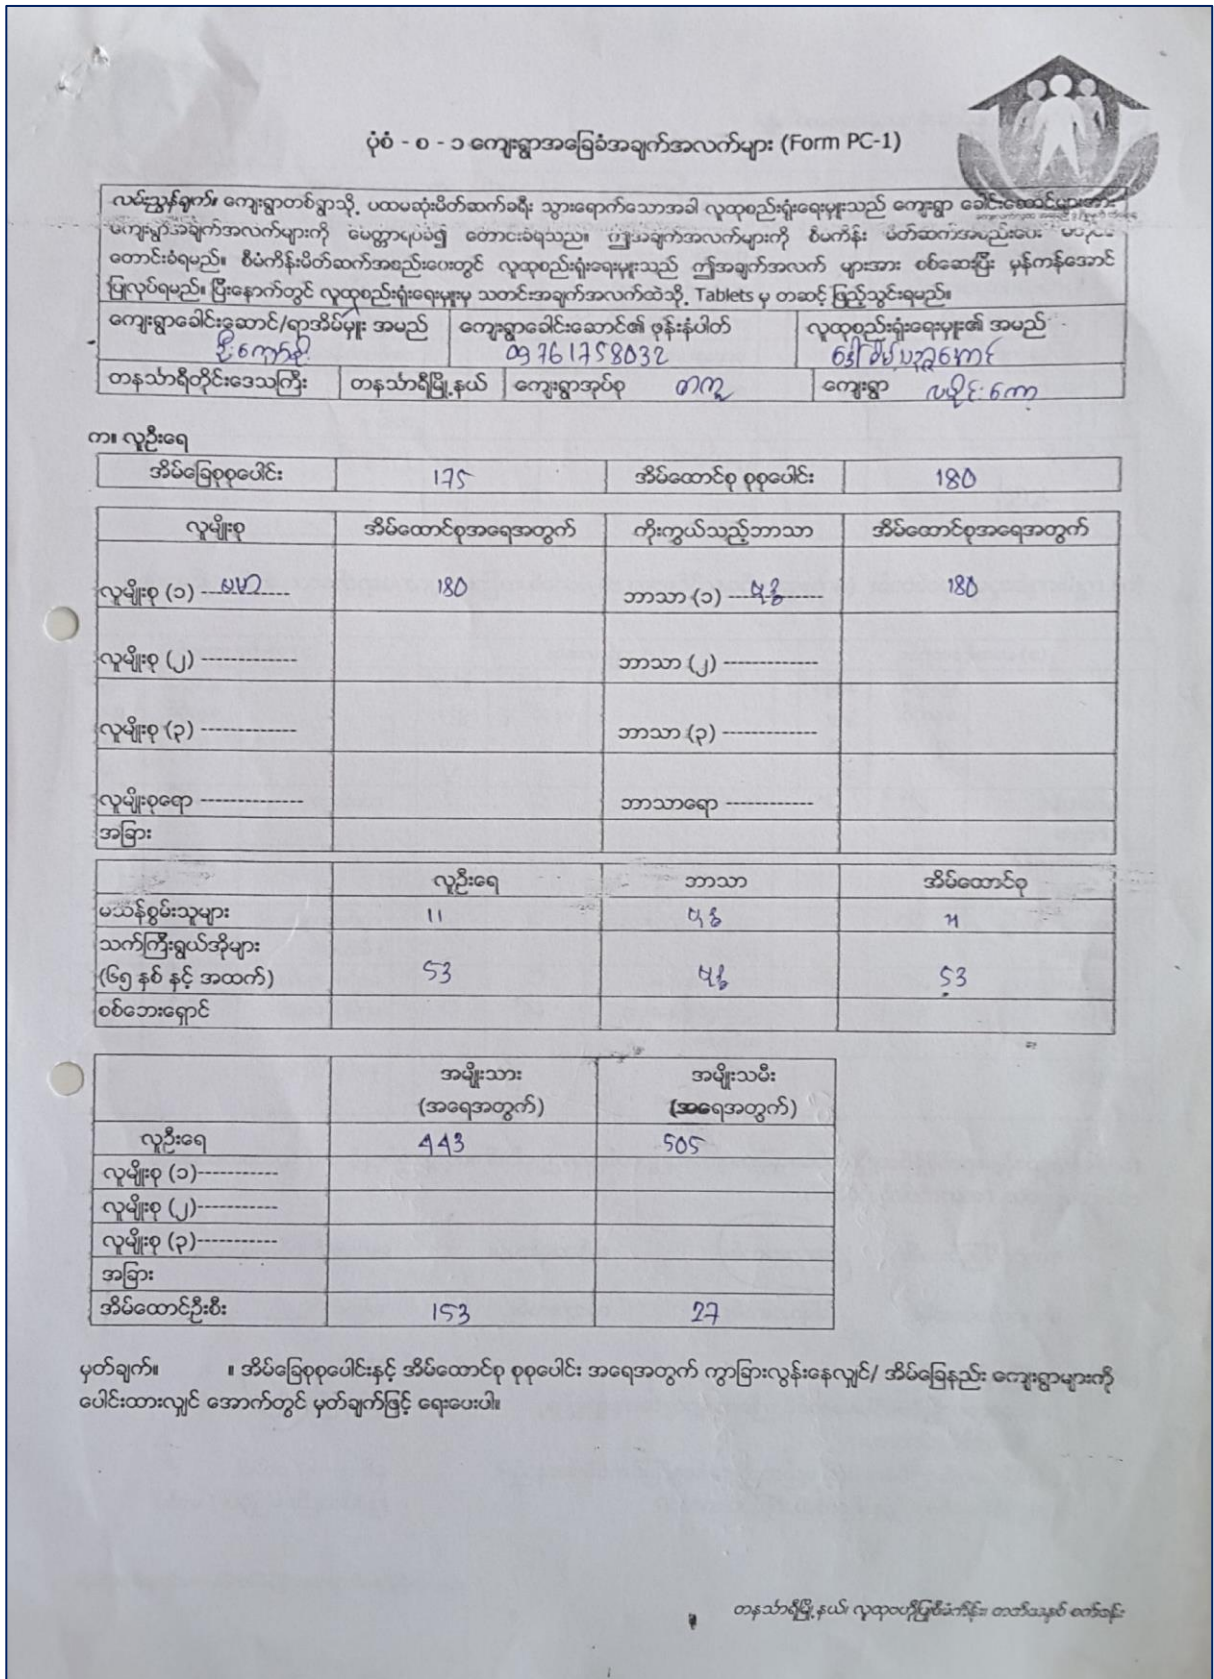 ပုံစံ - စ - ၁ ကျေးရွာအခြေခံအချက်အလက်များ (Form PC-1)
လမ်းညွှန်ချက်။ ကျေးရွာတစ်ရွာသို့ ပထမဆုံးမိတ်ဆက်ခရီး သွားရောက်သောအခါ လူထုစည်းရုံးရေးမှူးသည် ကျေးရွာ ခေါင်းဆောင်များအား
ကျေးရွာအချက်အလက်များကို မေတ္တာရပ်ခံ၍ တောင်းခံရသည်။ ဤအချက်အလက်များကို စီမံကိန်း မိတ်ဆက်အစည်းဝေး
တောင်းခံရမည်။ စီမံကိန်းမိတ်ဆက်အစည်းဝေးတွင် လူထုစည်းရုံးရေးမှူးသည် ဤအချက်အလက် များအား စစ်ဆေးပြီး မှန်ကန်အောင်
ပြုလုပ်ရမည်။ ပြီးနောက်တွင် လူထုစည်းရုံးရေးမှူးမှ သတင်းအချက်အလက်ထဲသို့ Tablets မှ တဆင့် ဖြည့်သွင်းရမည်။
ကျေးရွာခေါင်းဆောင်/ရာအိမ်မှူး အမည် ကျေးရွာခေါင်းဆောင်၏ ဖုန်းနံပါတ် လူထုစည်းရုံးရေးမှူး၏ အမည်
09761758032
တနင်္သာရီတိုင်းဒေသကြီး တနင်္သာရီမြို့နယ် ကျေးရွာအုပ်စု တကူ ကျေးရွာ
က။ လူဦးရေ
အိမ်ခြေစုစုပေါင်း 175 အိမ်ထောင်စု စုစုပေါင်း 180
လူမျိုးစု အိမ်ထောင်စုအရေအတွက် ကိုးကွယ်သည့်ဘာသာ အိမ်ထောင်စုအရေအတွက်
လူမျိုးစု (၁) ဗမာ 180 ဘာသာ (၁) ဗုဒ္ဓ 180
လူမျိုးစု (၂) ------------- ဘာသာ (၂) -------------
လူမျိုးစု (၃) ------------- ဘာသာ (၃) -------------
လူမျိုးစုရော -------------- ဘာသာရော ------------
အခြား
လူဦးရေ ဘာသာ အိမ်ထောင်စု
မသန်စွမ်းသူများ 11 ဗုဒ္ဓ 11
သက်ကြီးရွယ်အိုများ
(၆၅ နှစ် နှင့် အထက်) 53 ဗုဒ္ဓ 53
စစ်ဘေးရှောင်
အမျိုးသား အမျိုးသမီး
(အရေအတွက်) (အရေအတွက်)
လူဦးရေ 443 505
လူမျိုးစု (၁)-----------
လူမျိုးစု (၂)-----------
လူမျိုးစု (၃)-----------
အခြား
အိမ်ထောင်ဦးစီး 153 27
မှတ်ချက်။ ။ အိမ်ခြေစုစုပေါင်းနှင့် အိမ်ထောင်စု စုစုပေါင်း အရေအတွက် ကွာခြားလွန်းနေလျှင်/ အိမ်ခြေနည်း ကျေးရွာများကို
ပေါင်းထားလျှင် အောက်တွင် မှတ်ချက်ဖြင့် ရေးပေးပါ။
တနင်္သာရီမြို့နယ်၊ လူထုဗဟိုပြုစီမံကိန်း၊